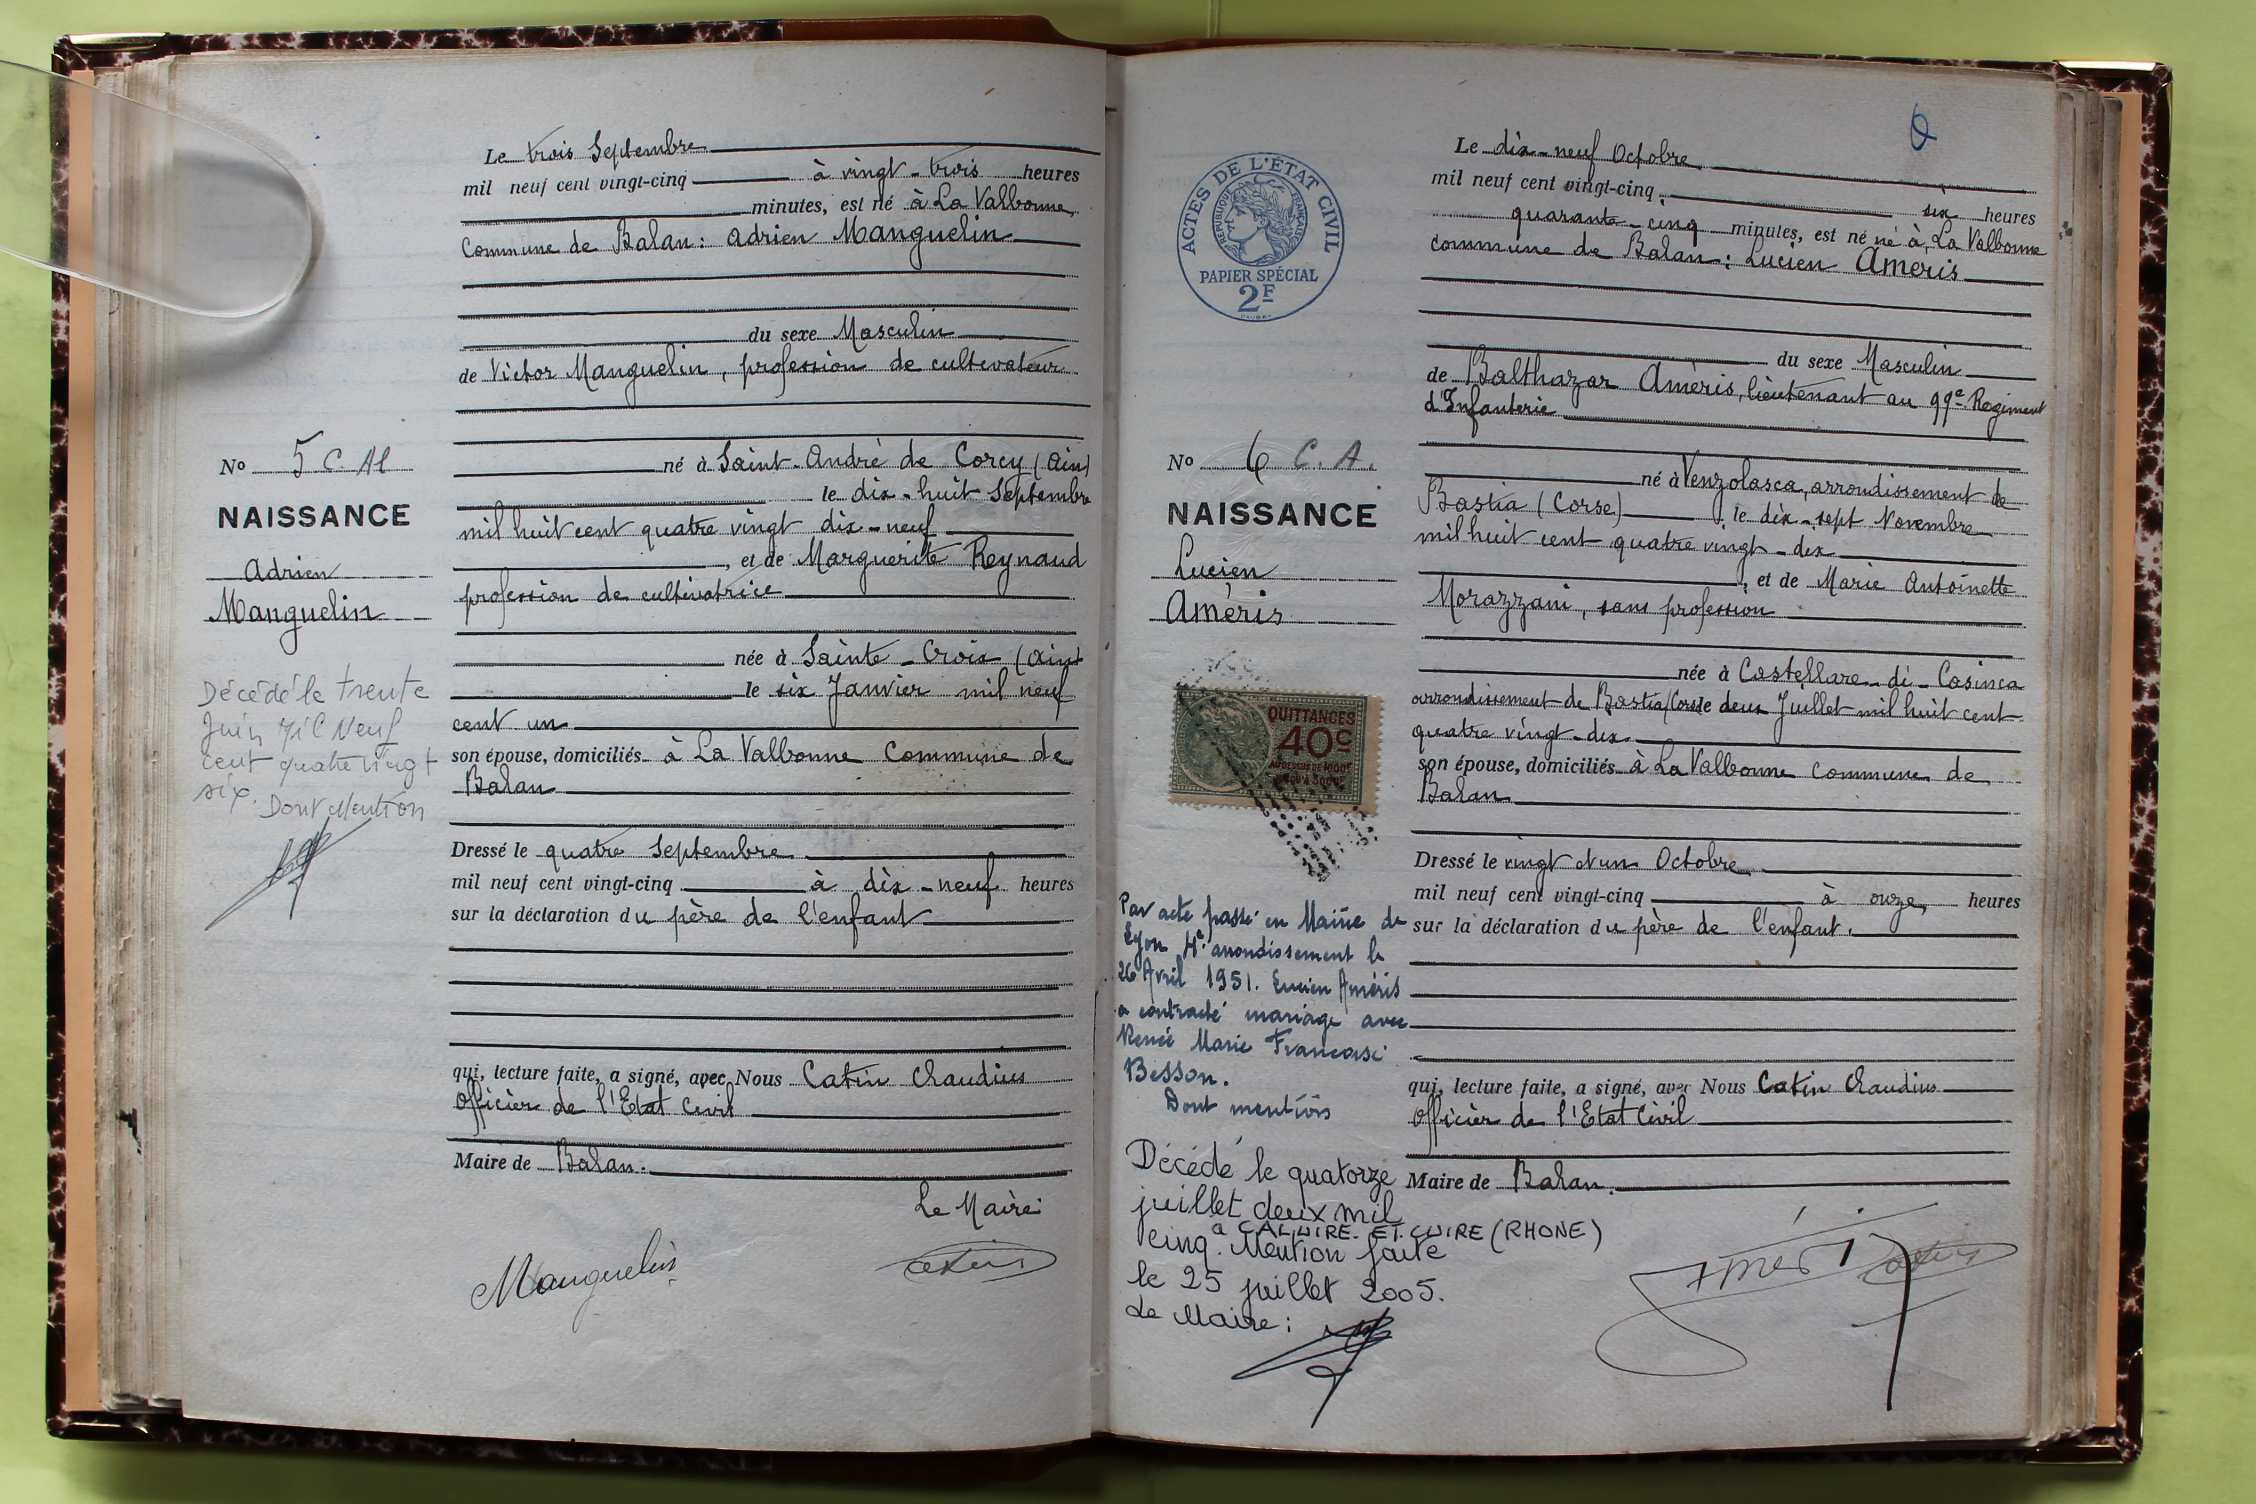 Le trois Septembre
mil neuf cent vingt-cinq à vingt-trois heures
minutes, est né à La Valbonne,
Commune de Balan : Adrien Manguelin
du sexe Masculin
de Victor Manguelin, profession de cultivateur
né à Saint-André de Corcy (Ain)
le dix-huit Septembre
mil huit cent quatre vingt dix-neuf
, et de Marguerite Reynaud
profession de cultivatrice
née à Sainte-Croix (Ain)
le six Janvier mil neuf
cent un
son épouse, domiciliés à La Valbonne Commune de
Balan
Dressé le quatre Septembre
mil neuf cent vingt-cinq à dix-neuf heures
sur la déclaration du père de l'enfant
qui, lecture faite, a signé, avec Nous Catin Claudius
Officier de l'Etat Civil
Maire de Balan.
Le Maire
Manguelin Catin
No 5 C. M
NAISSANCE
Adrien
Manguelin
Décédé le trente
Juin Mil Neuf
cent quatre vingt
six. Dont Mention
ACTES DE L'ÉTAT CIVIL
RÉPUBLIQUE FRANÇAISE
PAPIER SPÉCIAL
2F
No 6 C. A.
NAISSANCE
Lucien
Améris
QUITTANCES
40c
AU DESSUS DE 1000F
JUSQU'A 3000F
Par acte passé en Mairie de
Lyon 4e arrondissement le
26 Avril 1951. Lucien Améris
a contracté mariage avec
Renée Marie Francoise
Besson.
Dont mention
Décédé le quatorze
juillet deux mil
à CALUIRE-ET-CUIRE (RHONE)
cinq. Mention faite
le 25 juillet 2005.
Le Maire :
6
Le dix-neuf Octobre
mil neuf cent vingt-cinq, six heures
quarante-cinq minutes, est né né à La Valbonne
commune de Balan : Lucien Améris
du sexe Masculin
de Balthazar Améris, lieutenant au 99e Regiment
d'Infanterie
né à Venzolasca, arrondissement de
Bastia (Corse), le dix-sept Novembre
mil huit cent quatre vingt-dix
, et de Marie Antoinette
Morazzani, sans profession
née à Castellare-di-Casinca
arrondissement de Bastia (Corse) le deux Juillet mil huit cent
quatre vingt-dix
son épouse, domiciliés à La Valbonne commune de
Balan
Dressé le vingt et un Octobre
mil neuf cent vingt-cinq à onze, heures
sur la déclaration du père de l'enfant.
qui, lecture faite, a signé, avec Nous Catin Claudius
Officier de l'Etat Civil
Maire de Balan.
Améris Catin